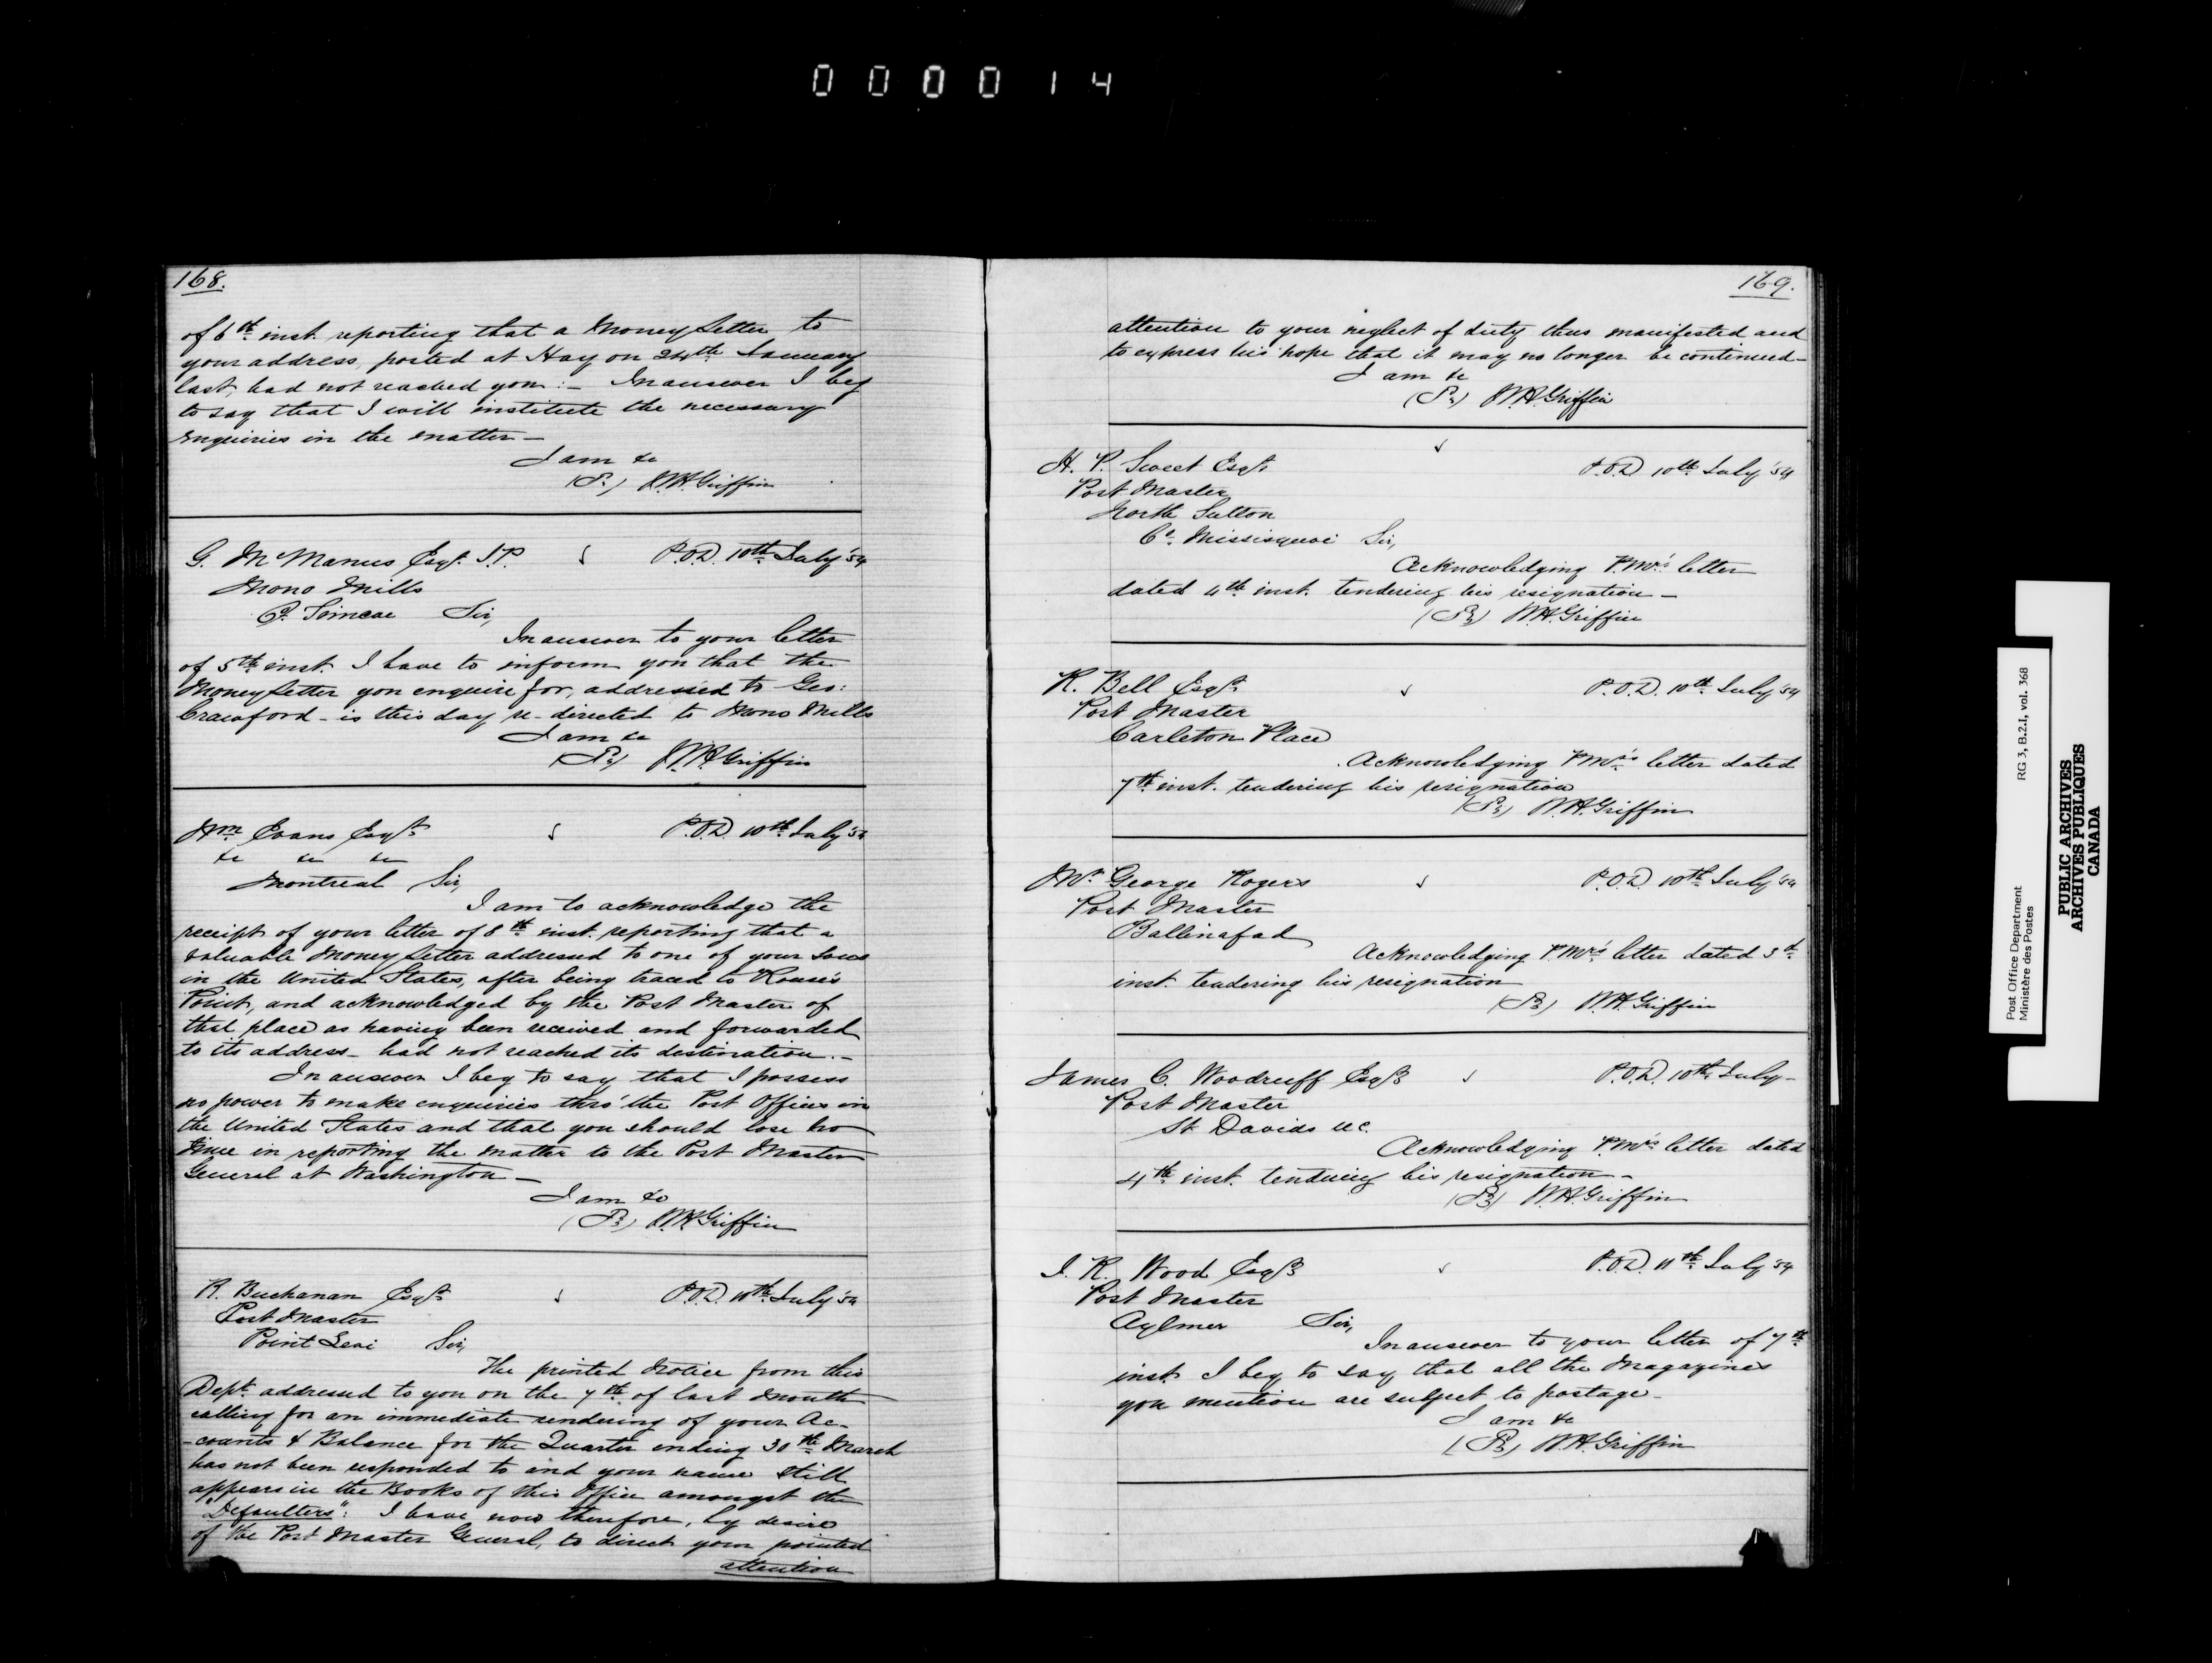 000014
168.
of 6th inst. reporting that a Money Letter to
your address, posted at Hay on 24th January
last, had not reached you:- In answer I beg
to say that I will institute the necessary
enquiries in the matter -
I am &c
W.H. Griffin
G. McManus Esqr. J.P. P.O.D. 10th July '54
Mono Mills
Co. Simcoe Sir,
In answer to your letter
of 5th inst. I have to inform you that the
Money Letter you enquire for, addressed to Geo:
Crawford - is this day re-directed to Mono Mills
I am &c
W.H. Griffin
Wm Evans Esqr P.O.D. 10th July '54
&c &c &c
Montreal Sir,
I am to acknowledge the
receipt of your letter of 8th inst. reporting that a
valuable Money Letter addressed to one of your Sons
in the United States, after being traced to Rouse's
Point, and acknowledged by the Post Master of
that place as having been received and forwarded
to its address - had not reached its destination. -
In answer I beg to say that I possess
no power to make enquiries thro' the Post Offices in
the United States and that you should lose no
time in reporting the matter to the Post Master
General at Washington -
I am &c
W.H. Griffin
R. Buchanan Esqr P.O.D. 10th July '54
Post Master
Point Levi Sir,
The printed Notice from this
Dept. addressed to you on the 7th of last month
calling for an immediate rendering of your Ac-
-counts & Balance for the Quarter ending 30th March
has not been responded to and your name still
appears in the Books of this Office amongst the
"Defaulters": I have now therefore, by desire
of the Post Master General, to direct your pointed
attention
169.
attention to your neglect of duty thus manifested and
to express his hope that it may no longer be continued -
I am &c
W.H. Griffin
H. P. Sweet Esqr P.O.D 10th July '54
Post Master
North Sutton
Co. Missisquoi Sir,
Acknowledging P.Mr's letter
dated 4th inst. tendering his resignation -
W.H. Griffin
R. Bell Esqr P.O.D. 10th July '54
Post Master
Carleton Place
Acknowledging PMr's letter dated
7th inst. tendering his resignation
W.H. Griffin
Mr George Rogers P.O.D. 10th July '54
Post Master
Ballinafad
Acknowledging PMr's letter dated 3d
inst. tendering his resignation
W.H. Griffin
James C. Woodruff Esqr P.O.D. 10th July -
Post Master
St Davids UC.
Acknowledging P.Mr's letter dated
4th inst. tendering his resignation -
W.H. Griffin
J. R. Wood Esqr P.O.D. 11th July '54
Post Master
Aylmer Sir,
In answer to your letter of 7th
inst. I beg to say that all the Magazines
you mention are subject to postage -
I am &c
W.H. Griffin
Post Office Department RG 3, B.2.I, vol. 368
Ministère des Postes
PUBLIC ARCHIVES
ARCHIVES PUBLIQUES
CANADA